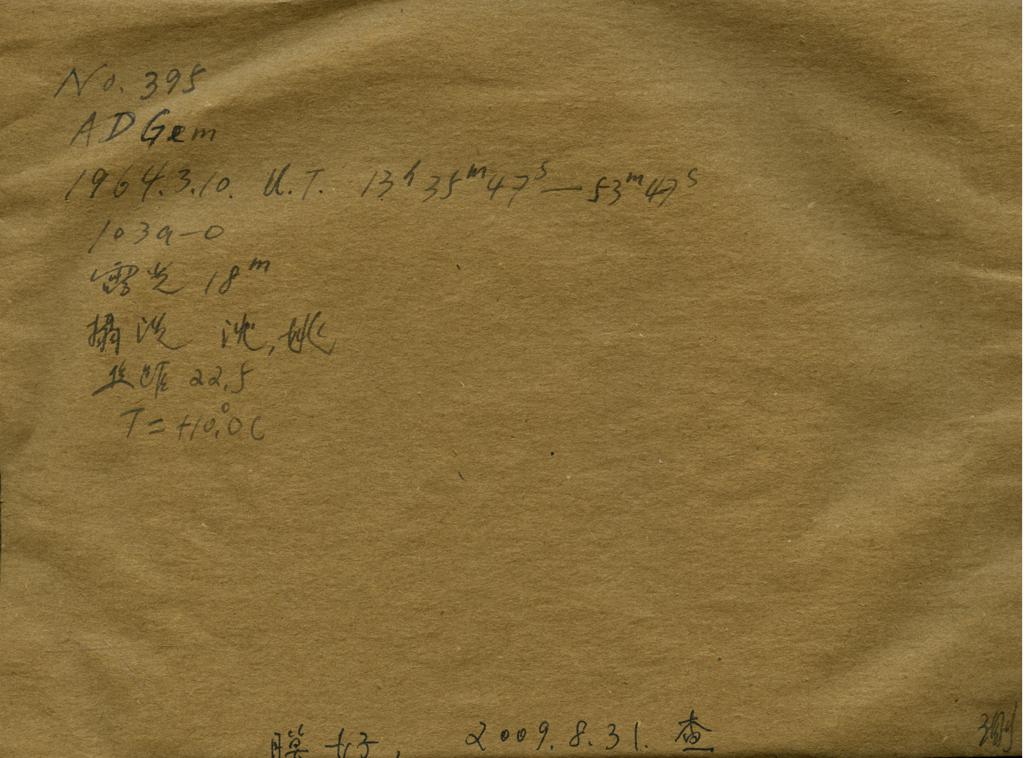 No. 395
AD Gem
1964.3.10. U.T. 13h 35m 47s — 53m 47s
103a-O
露光 18m
攝洗 沈,姚
焦距 22.5
T = +10.°0 C
膜好, 2009.8.31. 查